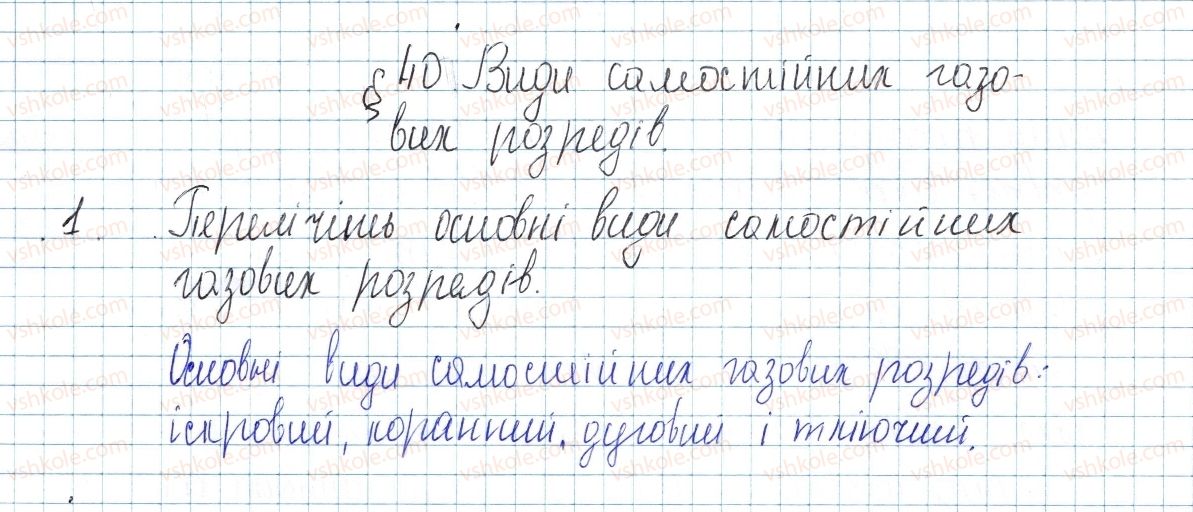 § 40 Види самостійних газо-
вих розредів.
1. Перелічіть основні види самостійних
газових розредів.
Основні види самостійних газових розредів:
іскровий, коранний, дуговий і тліючий.